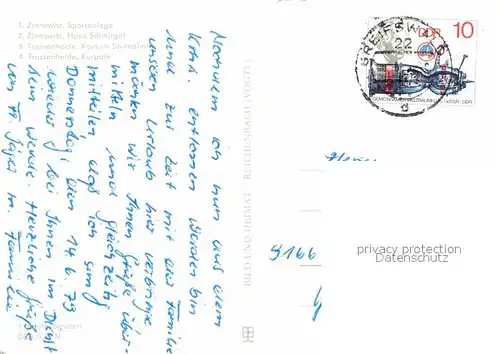 1. Zinnowitz, Sportanlage
2. Zinnowitz, Haus Schmirgel
3. Trassenheide, Konsum
4. Trassenheide, Kurpark
Nachdem ich nun aus dem
Krkh. entlassen worden bin
und zur Zeit mit der Familie
unseren Urlaub hier verbringe
möchten wir Ihnen Grüße über-
mitteln und gleichzeitig
mitteilen, daß ich am
Donnerstag, den 14.6.79
wieder bei Ihnen im Dienst
sein werde. Herzliche Grüße
Fr. m. Familie
BILD UND HEIMAT REICHENBACH (VOGTL)
GREIFSWALD
22
d
DDR 10
9166
privacy protection
Datenschutz